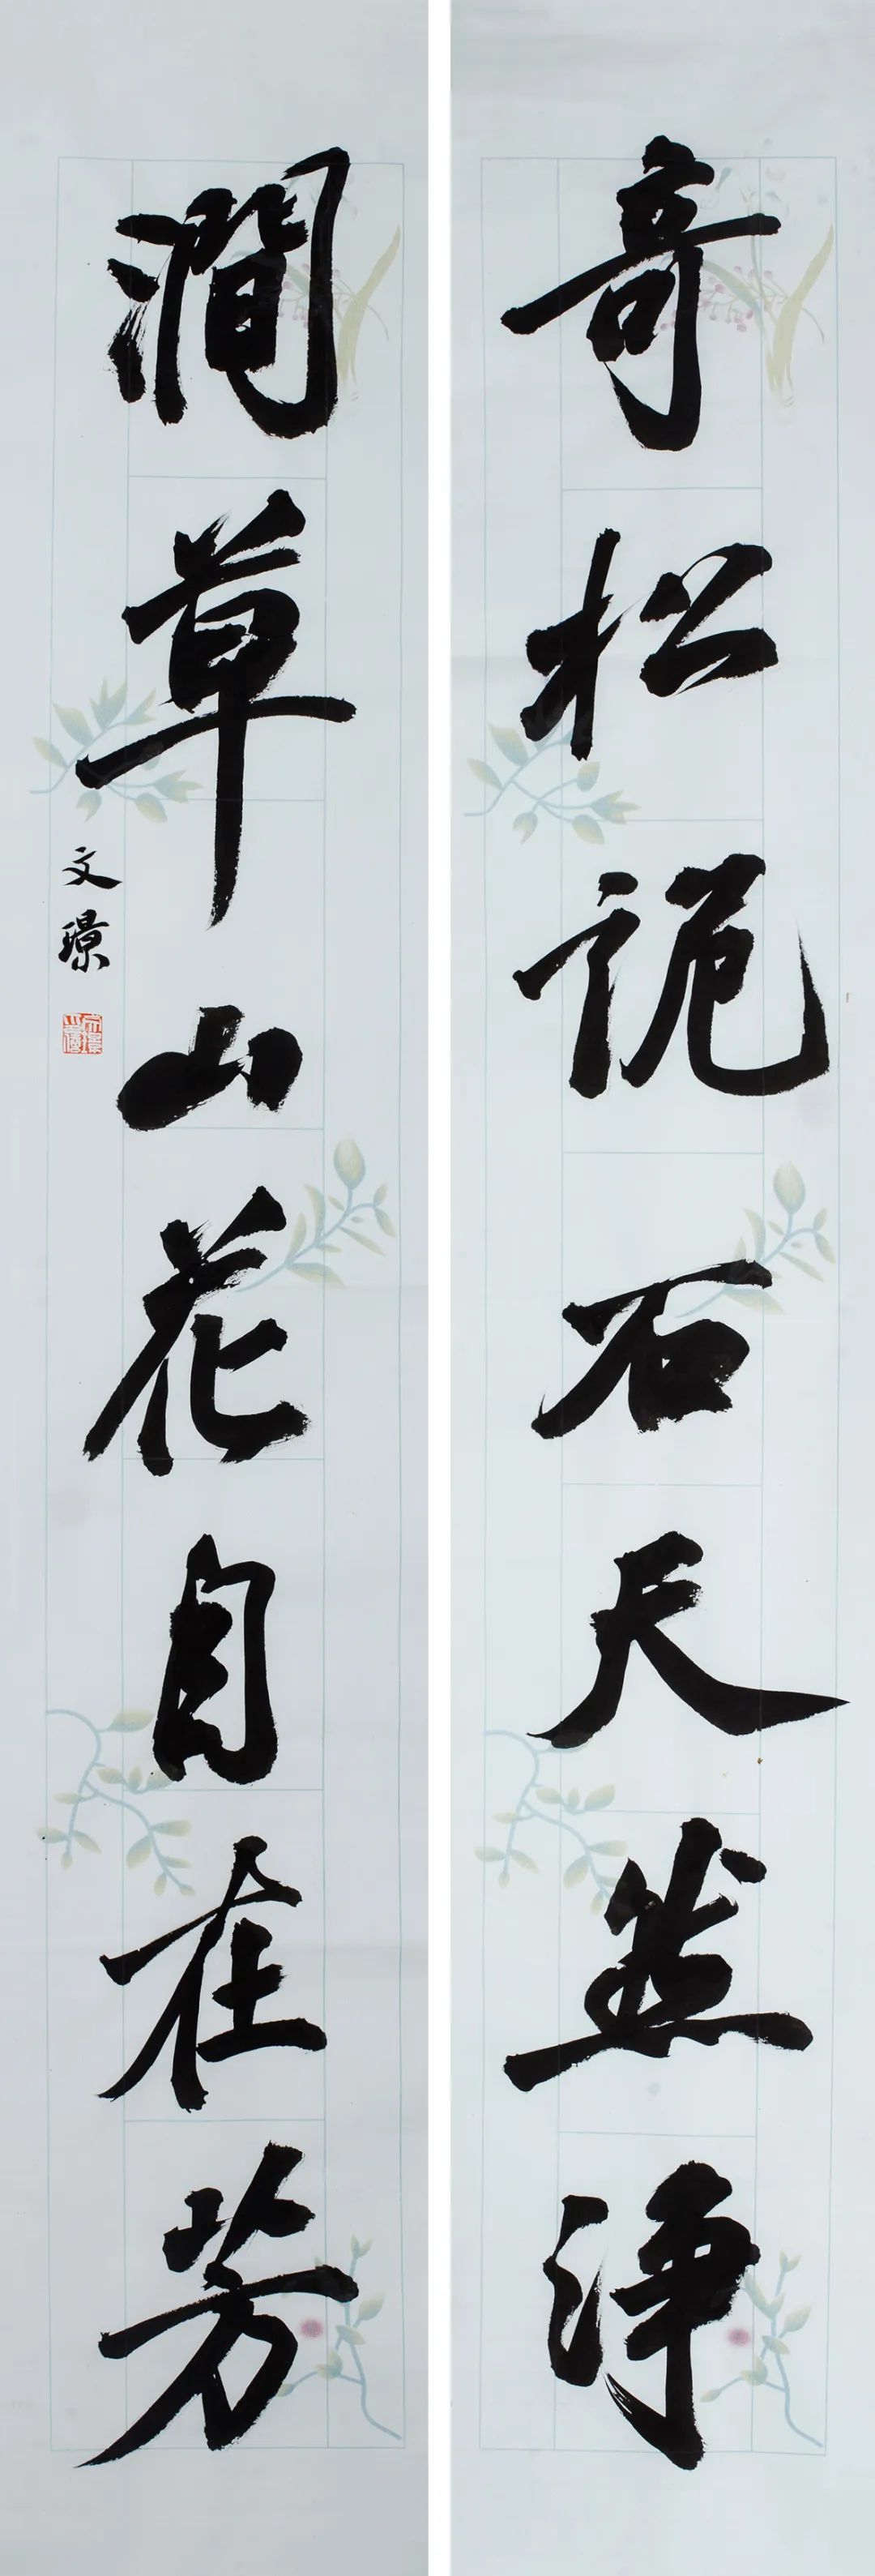 奇松詭石天然淨
澗草山花自在芳
文璟